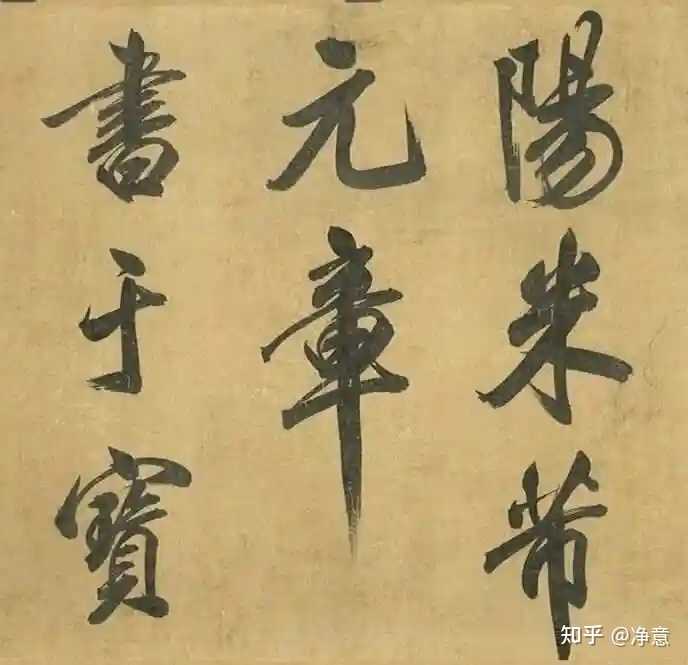 陽米芾
元章
書于寶
知乎 @净意